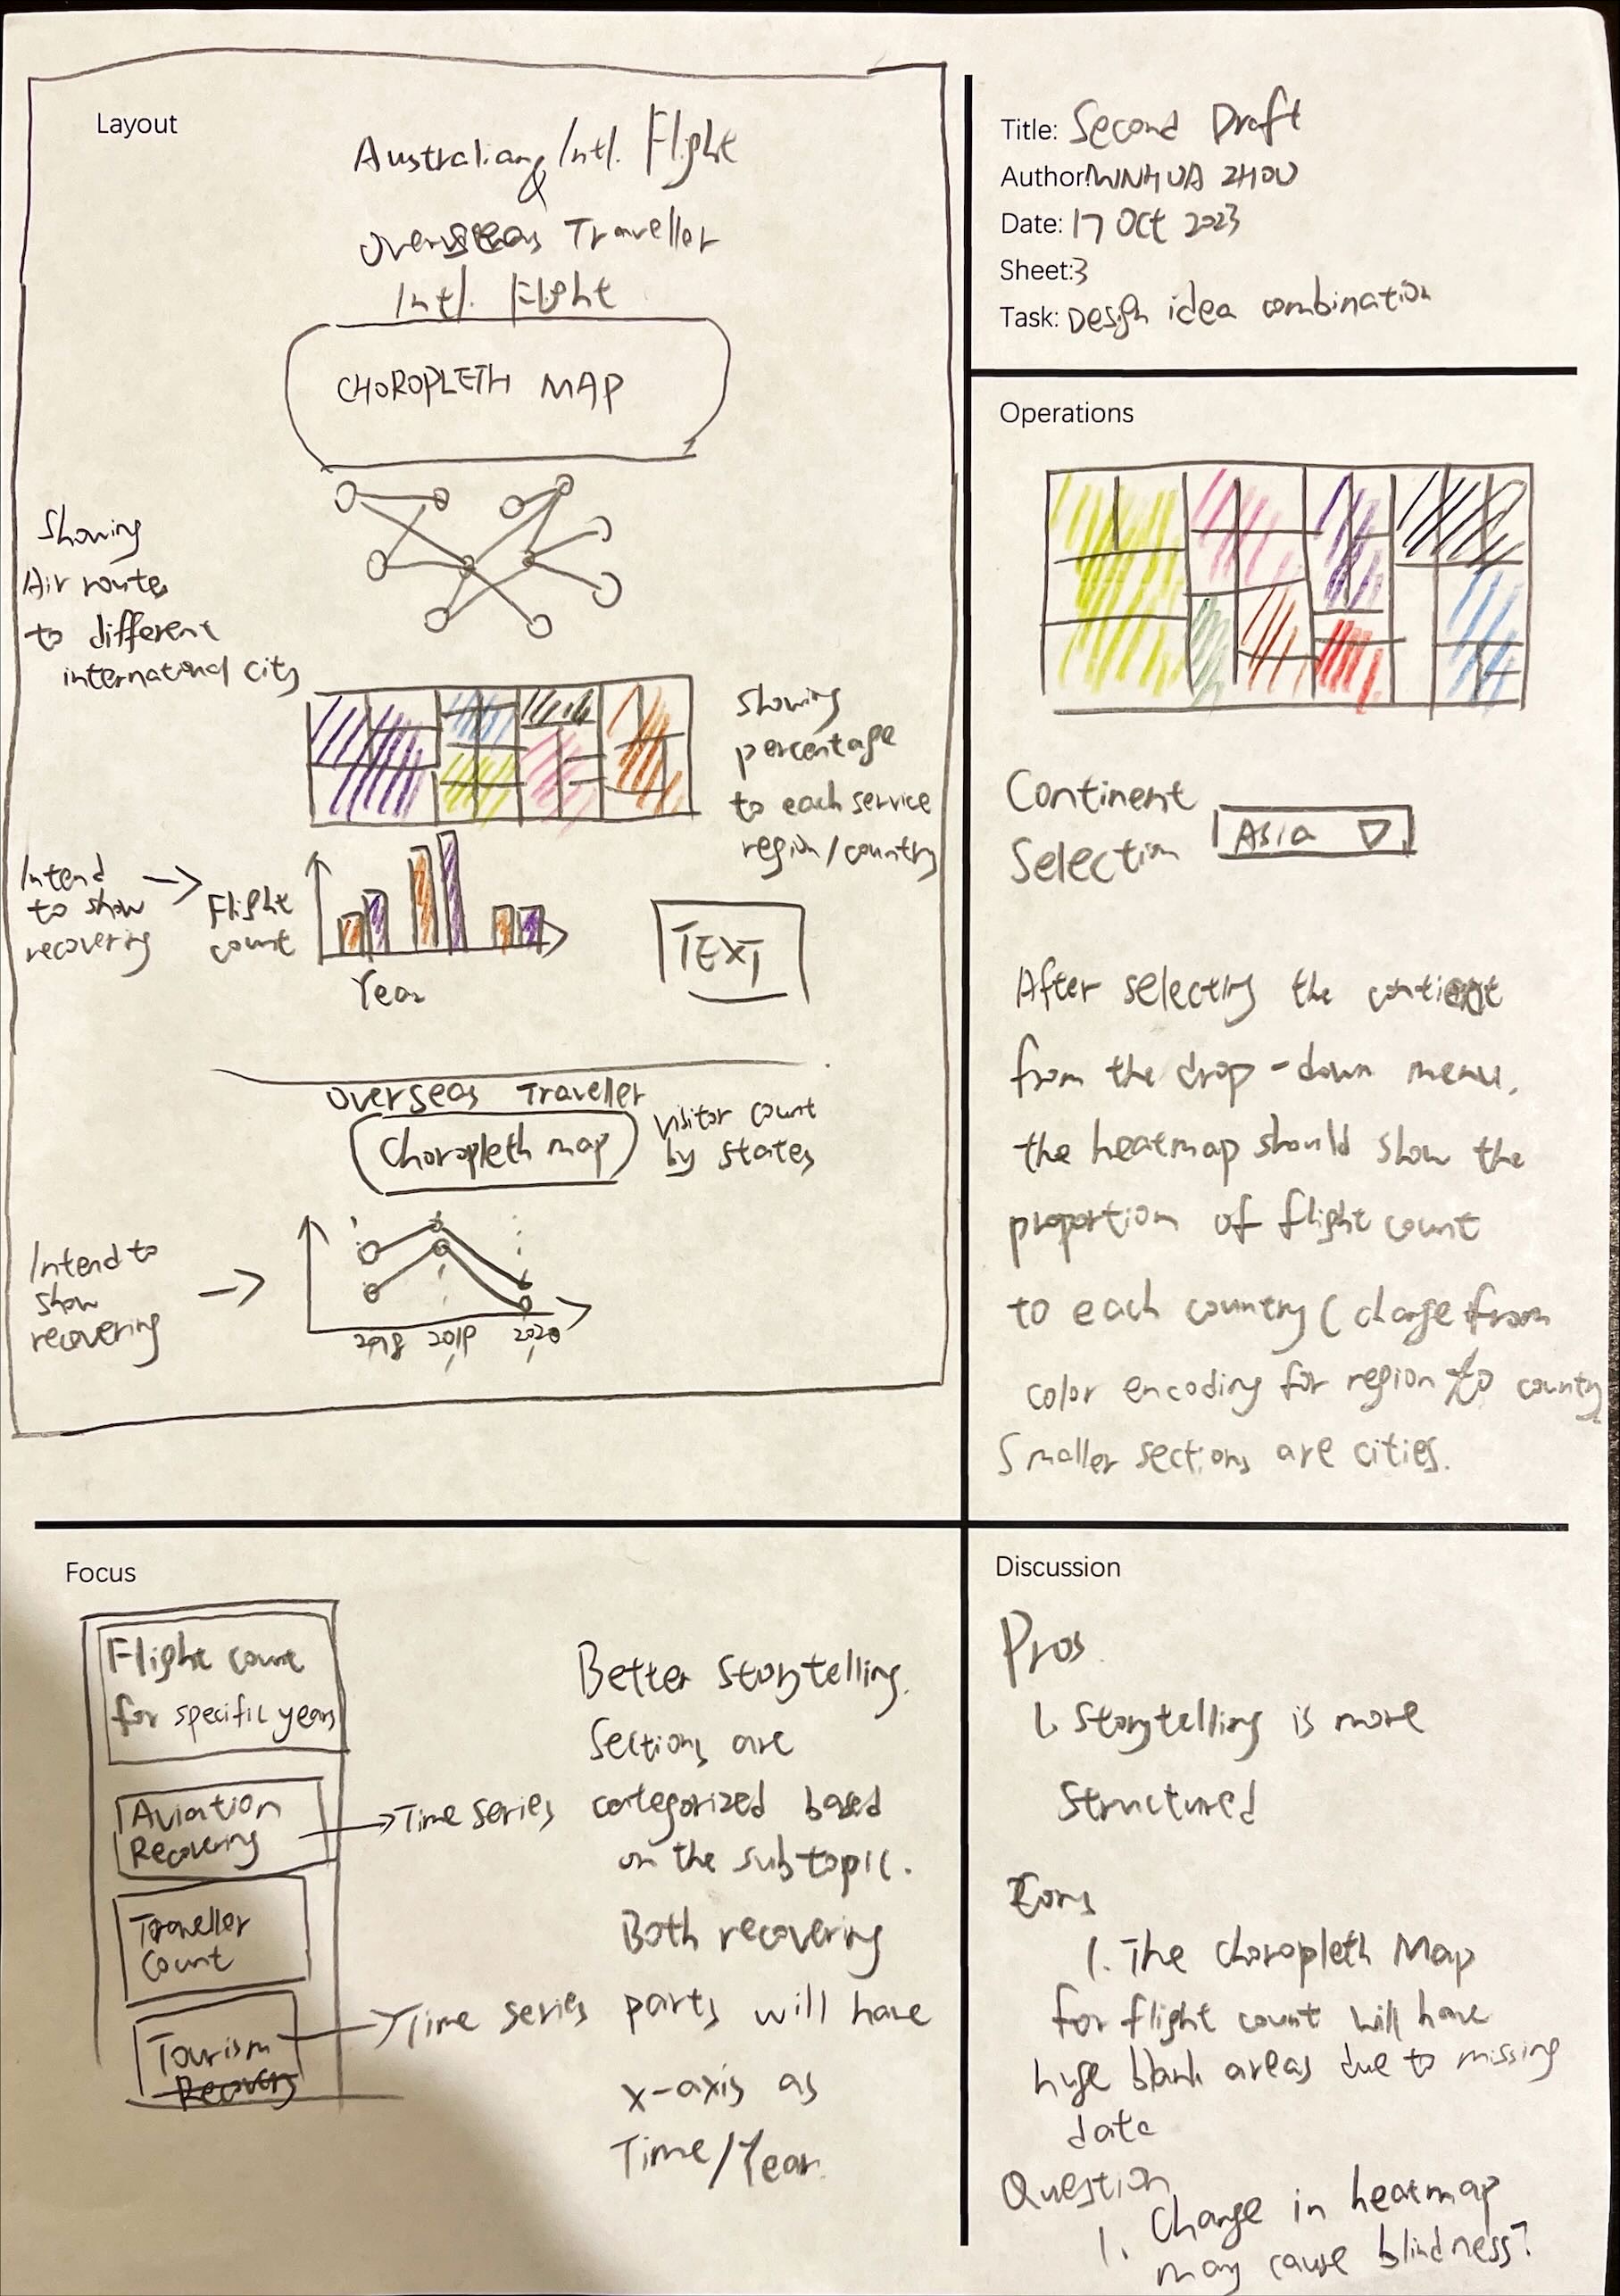 Layout
Australian Intl. Flight
&
Overseas Traveller
Intl. Flight
CHOROPLETH MAP
Showing
Air routes
to different
international city
Showing
percentage
to each service
region/country
Intend
to show
recovering
Flight
count
Year
TEXT
Overseas Traveller
Choropleth map
Visitor count
by states
Intend to
show
recovering
2018 2019 2020
Title: Second Draft
Author: ZHOU
Date: 17 Oct 2023
Sheet: 3
Task: Design idea combination
Operations
Continent
Selection
Asia
After selecting the continent
from the drop-down menu,
the heatmap should show the
proportion of flight count
to each country (change from
color encoding for region to country
Smaller sections are cities.
Focus
Flight count
for specific years
Aviation
Recovering
Time series
Traveller
Count
Tourism
Recovery
Time series
Better storytelling.
Sections are
categorized based
on the subtopic.
Both recovering
parts will have
x-axis as
Time/Year.
Discussion
Pros
1. Storytelling is more
Structured
Cons
1. The Choropleth Map
for flight count will have
huge blank areas due to missing
data
Question
1. Change in heatmap
may cause blindness?